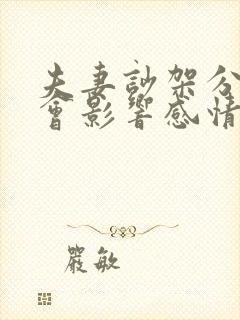 夫妻訜架分
會影響感情
嚴敏